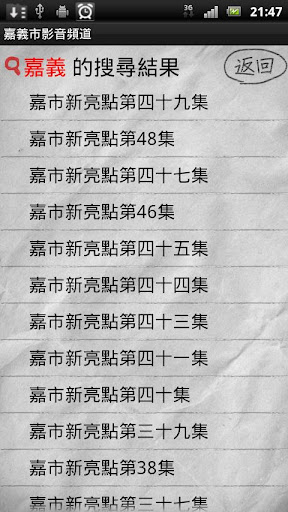 36
21:47
嘉義市影音頻道
嘉義 的搜尋結果
返回
嘉市新亮點第四十九集
嘉市新亮點第48集
嘉市新亮點第四十七集
嘉市新亮點第46集
嘉市新亮點第四十五集
嘉市新亮點第四十四集
嘉市新亮點第四十三集
嘉市新亮點第四十一集
嘉市新亮點第四十集
嘉市新亮點第三十九集
嘉市新亮點第38集
嘉市新亮點第三十七集